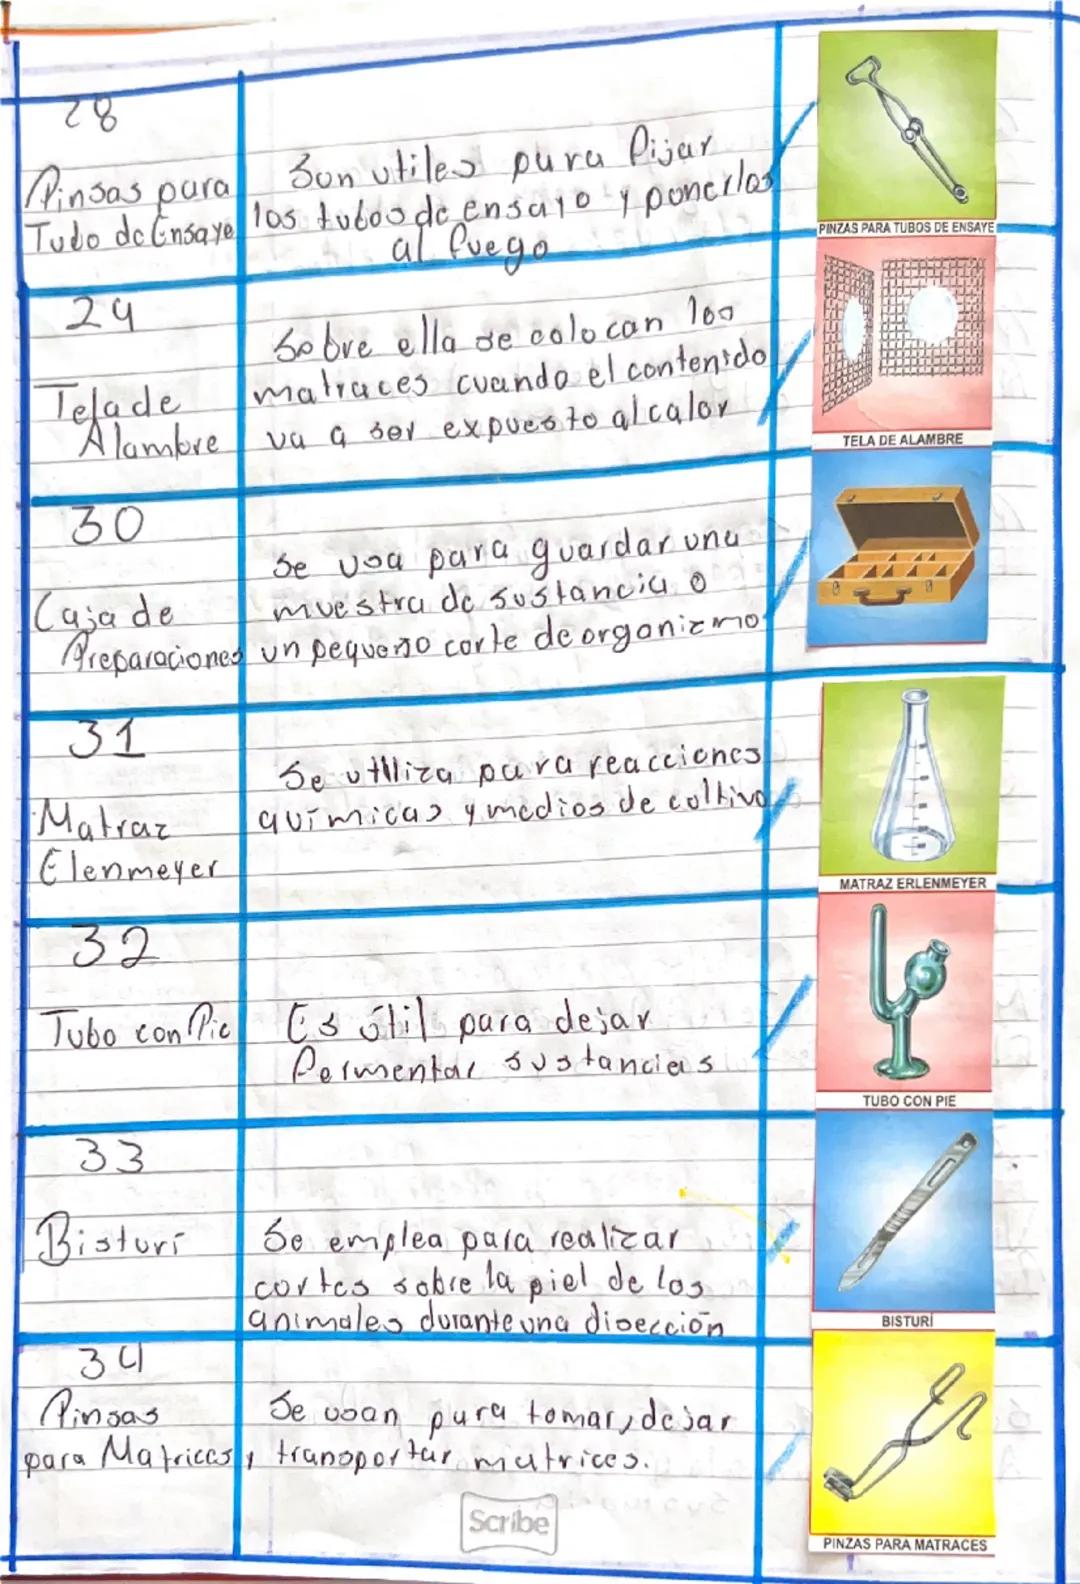 28
Pinsas para
Tudo de Ensaye
Son utiles para Pijar
los tubos de ensayo y ponerlos
al fuego
PINZAS PARA TUBOS DE ENSAYE
29
Tela de
Alambre
Sobre ella se colocan los
matraces cuando el contenido
va a ser expuesto al calor
TELA DE ALAMBRE
30
Caja de
Preparaciones
Se usa para guardar una
muestra de sustancia o
un pequeno corte de organizmo
31
Matraz
Elenmeyer
Se utiliza para reacciones
químicas y medios de cultivo
MATRAZ ERLENMEYER
32
Tubo con Pie
Es útil para dejar
Permentar sustancias
TUBO CON PIE
33
Bisturí
Se emplea para realizar
cortes sobre la piel de los
animales durante una disección
BISTURÍ
34
Pinsas
para Matrices
Se usan para tomar, dejar
y transportar matrices.
PINZAS PARA MATRACES
Scribe